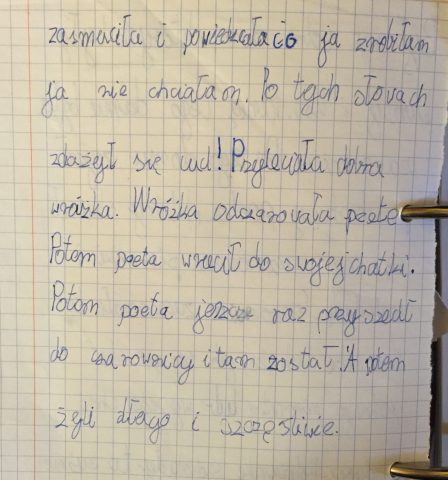 zasmuciła i powiedziała co ja zrobiłam
ja nie chciałam. Po tych słowach
zdażył się cud! Przyleciała dobra
wróżka. Wróżka odczarowała poetę
Potem poeta wrócił do swojej chatki.
Potem poeta jeszcze raz przyszedł
do czarownicy i tam został. A potem
żyli długo i szczęśliwie.